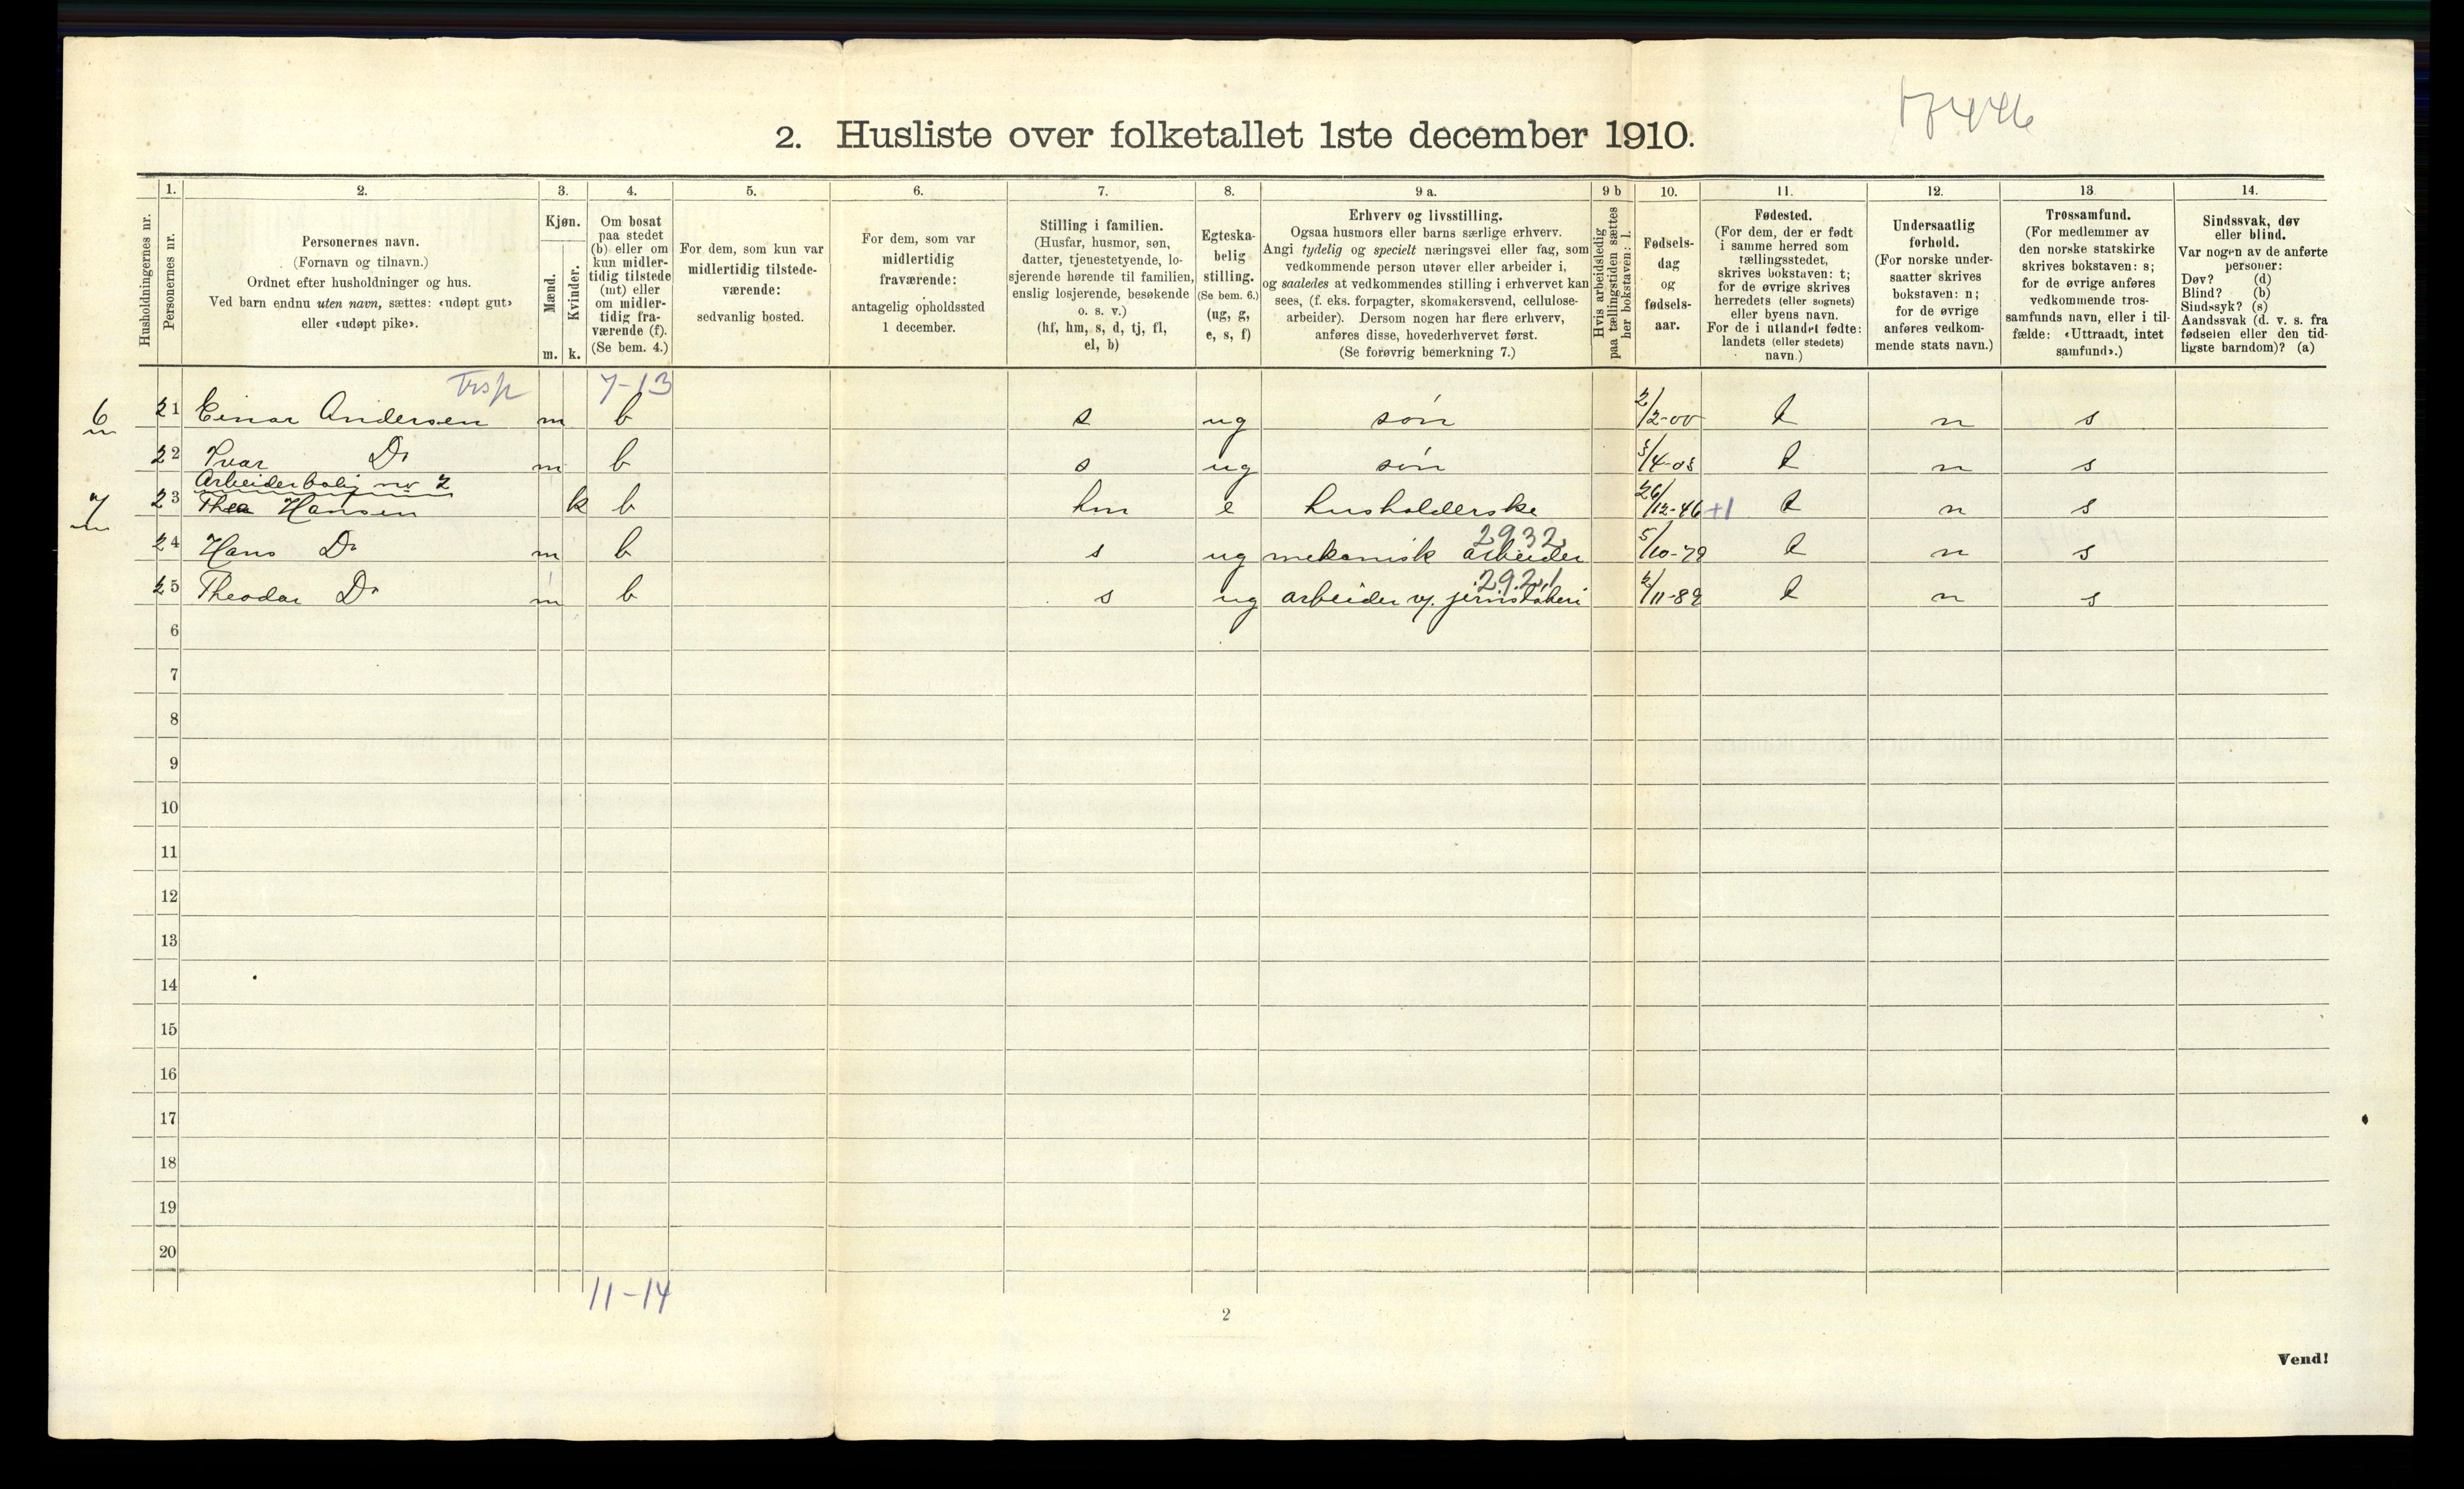 17446
2. Husliste over folketallet 1ste december 1910.
Husholdningernes nr.
1.
Personernes nr.
2.
Personernes navn.
(Fornavn og tilnavn.)
Ordnet efter husholdninger og hus.
Ved barn endnu uten navn, sættes: «udøpt gut»
eller «udøpt pike».
3.
Kjøn.
Mænd.
Kvinder.
m. k.
4.
Om bosat
paa stedet
(b) eller om
kun midler-
tidig tilstede
(mt) eller
om midler-
tidig fra-
værende (f).
(Se bem. 4.)
5.
For dem, som kun var
midlertidig tilstede-
værende:
sedvanlig bosted.
6.
For dem, som var
midlertidig
fraværende:
antagelig opholdssted
1 december.
7.
Stilling i familien.
(Husfar, husmor, søn,
datter, tjenestetyende, lo-
sjerende hørende til familien,
enslig losjerende, besøkende
o. s. v.)
(hf, hm, s, d, tj, fl,
el, b)
8.
Egteska-
belig
stilling.
(Se bem. 6.)
(ug, g,
e, s, f)
9 a.
Erhverv og livsstilling.
Ogsaa husmors eller barns særlige erhverv.
Angi tydelig og specielt næringsvei eller fag, som
vedkommende person utøver eller arbeider i,
og saaledes at vedkommendes stilling i erhvervet kan
sees, (f. eks. forpagter, skomakersvend, cellulose-
arbeider). Dersom nogen har flere erhverv,
anføres disse, hovederhvervet først.
(Se forøvrig bemerkning 7.)
9 b
Hvis arbeidsledig
paa tællingstiden sættes
her bokstaven: l.
10.
Fødsels-
dag
og
fødsels-
aar.
11.
Fødested.
(For dem, der er født
i samme herred som
tællingsstedet,
skrives bokstaven: t;
for de øvrige skrives
herredets (eller sognets)
eller byens navn.
For de i utlandet fødte:
landets (eller stedets)
navn.)
12.
Undersaatlig
forhold.
(For norske under-
saatter skrives
bokstaven: n;
for de øvrige
anføres vedkom-
mende stats navn.)
13
Trossamfund.
(For medlemmer av
den norske statskirke
skrives bokstaven: s;
for de øvrige anføres
vedkommende tros-
samfunds navn, eller i til-
fælde: «Uttraadt, intet
samfund».)
14.
Sindssvak, døv
eller blind.
Var nogen av de anførte
personer:
Døv? (d)
Blind? (b)
Sindssyk? (s)
Aandssvak (d. v. s. fra
fødselen eller den tid-
ligste barndom)? (a)
Trsp 7-13
6 21 Einar Andersen m b s ug søn 2/2-00 t n s
22 Ivar Do m b s ug søn t n s
Arbeiderbolig no 2
7 23 Thea Hansen k b hm e husholderske 26/12-46 +1 t n s
2932
24 Hans Do m b s ug mekanisk arbeider 5/10-79 t n s
292.1
25 Theodor Do m b s ug arbeider v. jernstøberi 2/11-89 t n s
6
7
8
9
10
11
12
13
14
15
16
17
18
19
20
11-14
2
Vend!